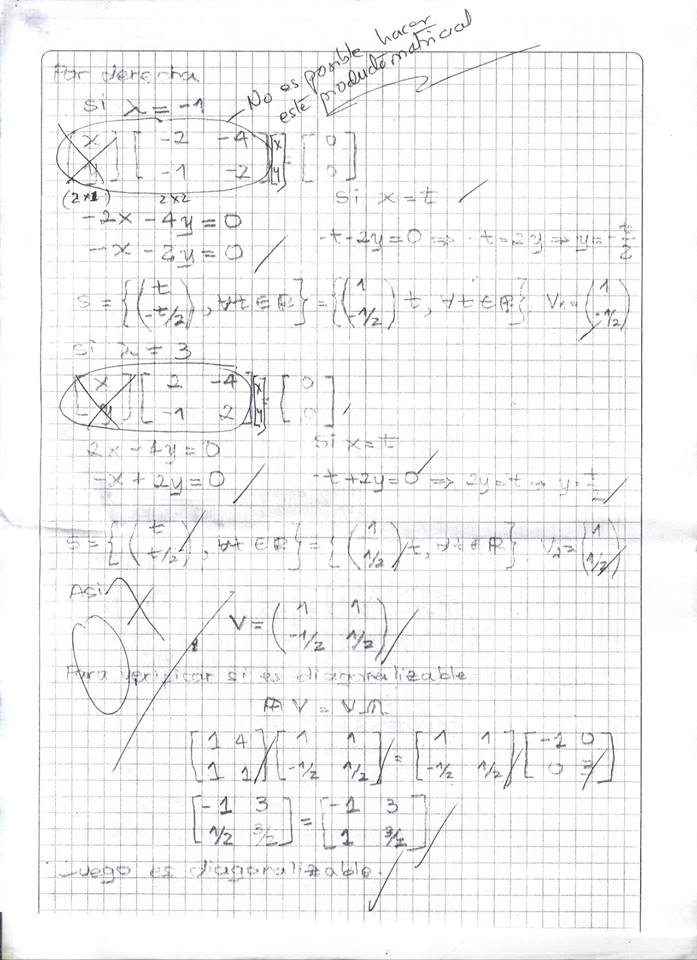 Por derecha
No es posible hacer
este producto matricial
Si λ = -1
[x y] [-2 -4 -1 -2] [x y] = [0 0]
(2×1) 2×2
Si x = t
-2x - 4y = 0
-x - 2y = 0
-t - 2y = 0 ⇒ -t = 2y ⇒ y = -t/2
S = {(t -t/2), ∀t ∈ ℝ} = {(1 -1/2) t, ∀t ∈ ℝ} V₁ = (1 -1/2)
Si λ = 3
[x y] [2 -4 -1 2] [x y] = [0 0]
2x - 4y = 0
Si x = t
-x + 2y = 0
-t + 2y = 0 ⇒ 2y = t → y = t/2
S = {(t t/2), ∀t ∈ ℝ} = {(1 1/2) t, ∀t ∈ ℝ} V₂ = (1 1/2)
Asi
V = (1 1 -1/2 1/2)
Para verificar si es diagonalizable
A V = V Λ
[1 4 1 1] [1 1 -1/2 1/2] = [1 1 -1/2 1/2] [-1 0 0 3]
[-1 3 1/2 3/2] = [-1 3 1 3/2]
Luego es diagonalizable.